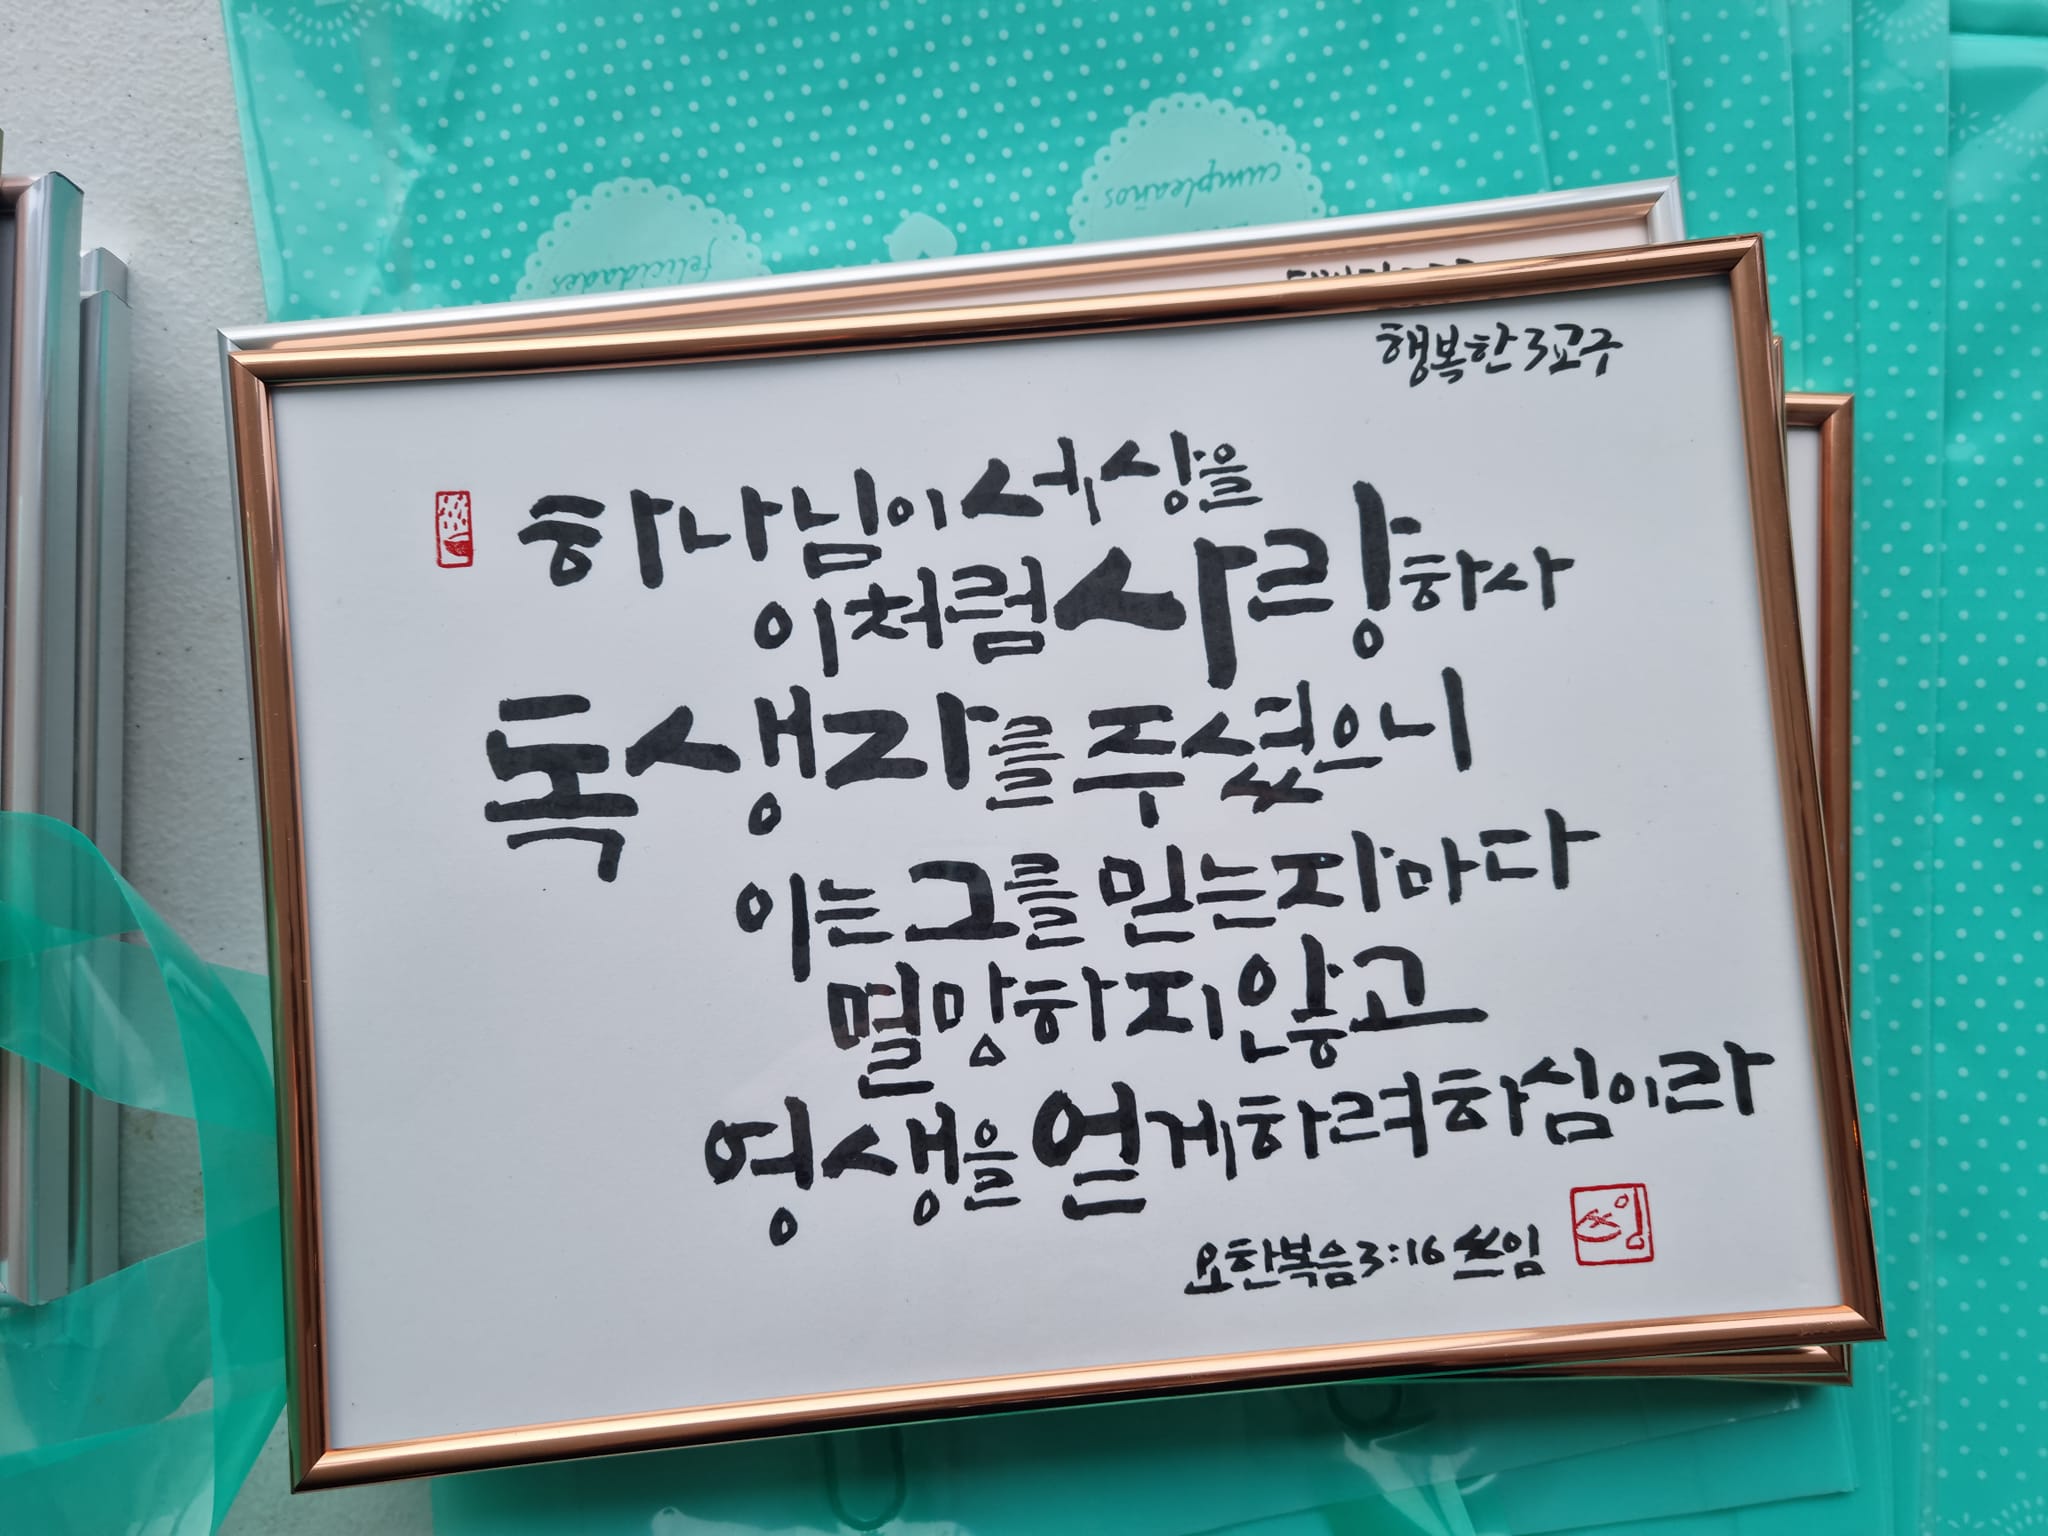 felicidades
cumpleaños
행복한 3교구
하나님이 세상을
이처럼 사랑하사
독생자를 주셨으니
이는 그를 믿는 자마다
멸망하지 않고
영생을 얻게 하려 하심이라
요한복음 3:16 쓰임